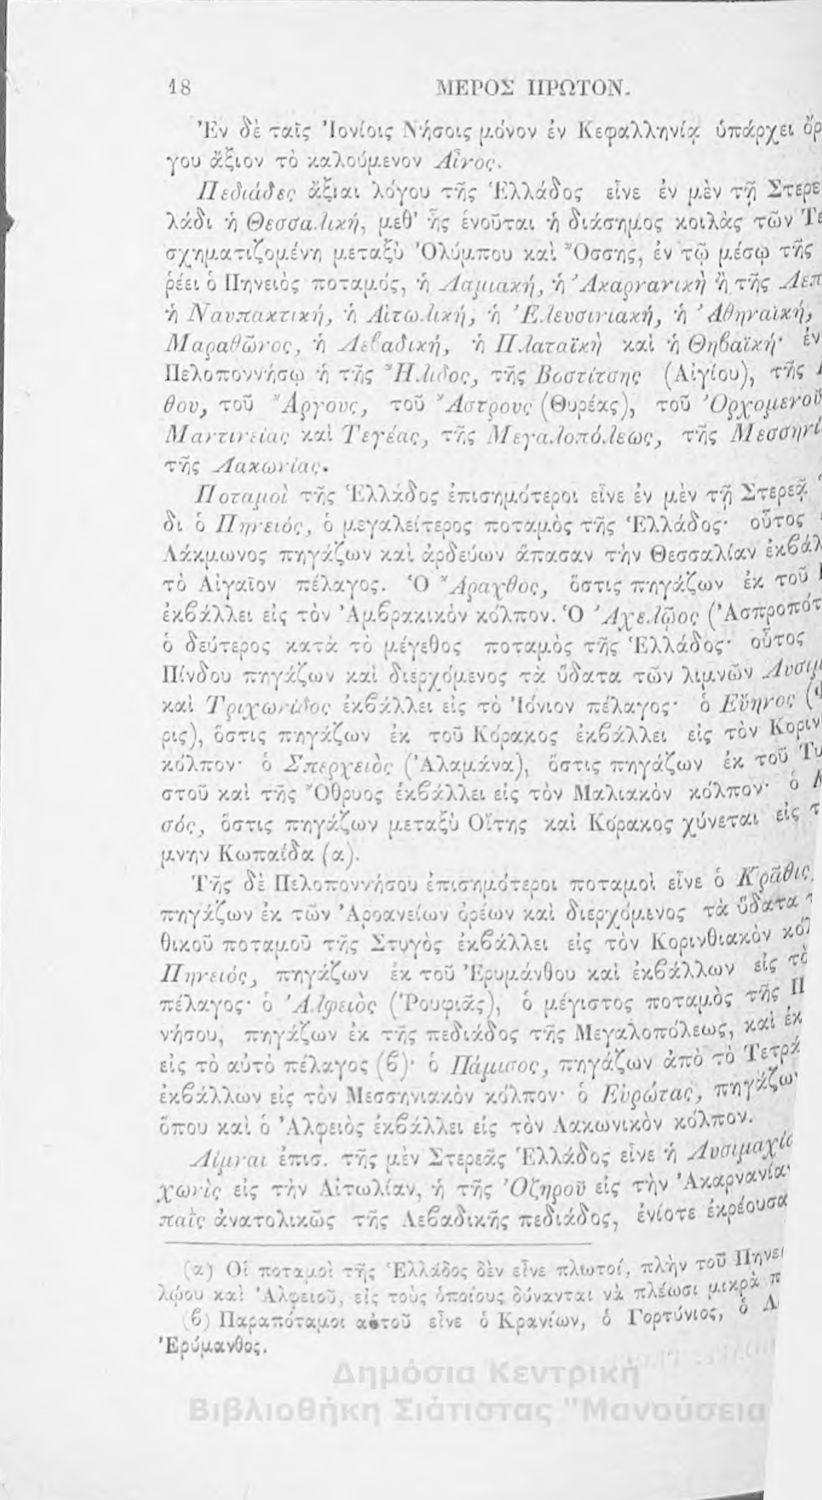 18 ΜΕΡΟΣ ΠΡΩΤΟΝ.
Ἐν δὲ ταῖς Ἰονίοις Νήσοις μόνον ἐν Κεφαλληνίᾳ ὑπάρχει ὄρ
γου ἄξιον τὸ καλούμενον Αἶνος.
Πεδιάδες ἄξιαι λόγου τῆς Ἑλλάδος εἶνε ἐν μὲν τῇ Στερε
λάδι ἡ Θεσσαλική, μεθ' ἧς ἑνοῦται ἡ διάσημος κοιλὰς τῶν Τε
σχηματιζομένη μεταξὺ Ὀλύμπου καὶ Ὄσσης, ἐν τῷ μέσῳ τῆς
ῥέει ὁ Πηνειὸς ποταμός, ἡ Λαμιακή, ἡ Ἀκαρνανικὴ ἢ τῆς Λεπ
ἡ Ναυπακτική, ἡ Αἰτωλική, ἡ Ἐλευσινιακή, ἡ Ἀθηναϊκή,
Μαραθῶνος, ἡ Λεβαδική, ἡ Πλαταϊκὴ καὶ ἡ Θηβαϊκή· ἐν
Πελοποννήσῳ ἡ τῆς Ἤλιδος, τῆς Βοστίτσης (Αἰγίου), τῆς
θου, τοῦ Ἄργους, τοῦ Ἄστρους (Θυρέας), τοῦ Ὀρχομενοῦ
Μαντινείας καὶ Τεγέας, τῆς Μεγαλοπόλεως, τῆς Μεσσηνί
τῆς Λακωνίας.
Ποταμοὶ τῆς Ἑλλάδος ἐπισημότεροι εἶνε ἐν μὲν τῇ Στερεᾷ
δι ὁ Πηνειός, ὁ μεγαλείτερος ποταμὸς τῆς Ἑλλάδος· οὗτος
Λάκμωνος πηγάζων καὶ ἀρδεύων ἅπασαν τὴν Θεσσαλίαν ἐκβάλ
τὸ Αἰγαῖον πέλαγος. Ὁ Ἄραχθος, ὅστις πηγάζων ἐκ τοῦ
ἐκβάλλει εἰς τὸν Ἀμβρακικὸν κόλπον. Ὁ Ἀχελῷος (Ἀσπροπότ
ὁ δεύτερος κατὰ τὸ μέγεθος ποταμὸς τῆς Ἑλλάδος· οὗτος
Πίνδου πηγάζων καὶ διερχόμενος τὰ ὕδατα τῶν λιμνῶν Λυσιμ
καὶ Τριχωνίδος ἐκβάλλει εἰς τὸ Ἰόνιον πέλαγος· ὁ Εὔηνος (Φ
ρις), ὅστις πηγάζων ἐκ τοῦ Κόρακος ἐκβάλλει εἰς τὸν Κοριν
κόλπον· ὁ Σπερχειὸς (Ἀλαμάνα), ὅστις πηγάζων ἐκ τοῦ Τυ
στοῦ καὶ τῆς Ὄθρυος ἐκβάλλει εἰς τὸν Μαλιακὸν κόλπον· ὁ Κ
σός, ὅστις πηγάζων μεταξὺ Οἴτης καὶ Κόρακος χύνεται εἰς τ
μνην Κωπαΐδα (α).
Τῆς δὲ Πελοποννήσου ἐπισημότεροι ποταμοὶ εἶνε ὁ Κρᾶθις,
πηγάζων ἐκ τῶν Ἀροανείων ὀρέων καὶ διερχόμενος τὰ ὕδατα τ
θικοῦ ποταμοῦ τῆς Στυγὸς ἐκβάλλει εἰς τὸν Κορινθιακὸν κόλ
Πηνειός, πηγάζων ἐκ τοῦ Ἐρυμάνθου καὶ ἐκβάλλων εἰς τὸ
πέλαγος· ὁ Ἀλφειὸς (Ῥουφιᾶς), ὁ μέγιστος ποταμὸς τῆς Π
νήσου, πηγάζων ἐκ τῆς πεδιάδος τῆς Μεγαλοπόλεως, καὶ ἐκ
εἰς τὸ αὐτὸ πέλαγος (β)· ὁ Πάμισος, πηγάζων ἀπὸ τὸ Τετρά
ἐκβάλλων εἰς τὸν Μεσσηνιακὸν κόλπον· ὁ Εὐρώτας, πηγάζων
ὅπου καὶ ὁ Ἀλφειὸς ἐκβάλλει εἰς τὸν Λακωνικὸν κόλπον.
Λίμναι ἐπισ. τῆς μὲν Στερεᾶς Ἑλλάδος εἶνε ἡ Λυσιμαχία
χωνὶς εἰς τὴν Αἰτωλίαν, ἡ τῆς Ὀζηροῦ εἰς τὴν Ἀκαρνανίαν
παῒς ἀνατολικῶς τῆς Λεβαδικῆς πεδιάδος, ἐνίοτε ἐκρέουσα
(α) Οἱ ποταμοὶ τῆς Ἑλλάδος δὲν εἶνε πλωτοί, πλὴν τοῦ Πηνει
λῴου καὶ Ἀλφειοῦ, εἰς τοὺς ὁποίους δύνανται νὰ πλέωσι μικρὰ π
(β) Παραπόταμοι αὐτοῦ εἶνε ὁ Κρανίων, ὁ Γορτύνιος, ὁ
Ἐρύμανθος.
Δημόσια Κεντρική
Βιβλιοθήκη Σιάτιστας "Μανούσεια